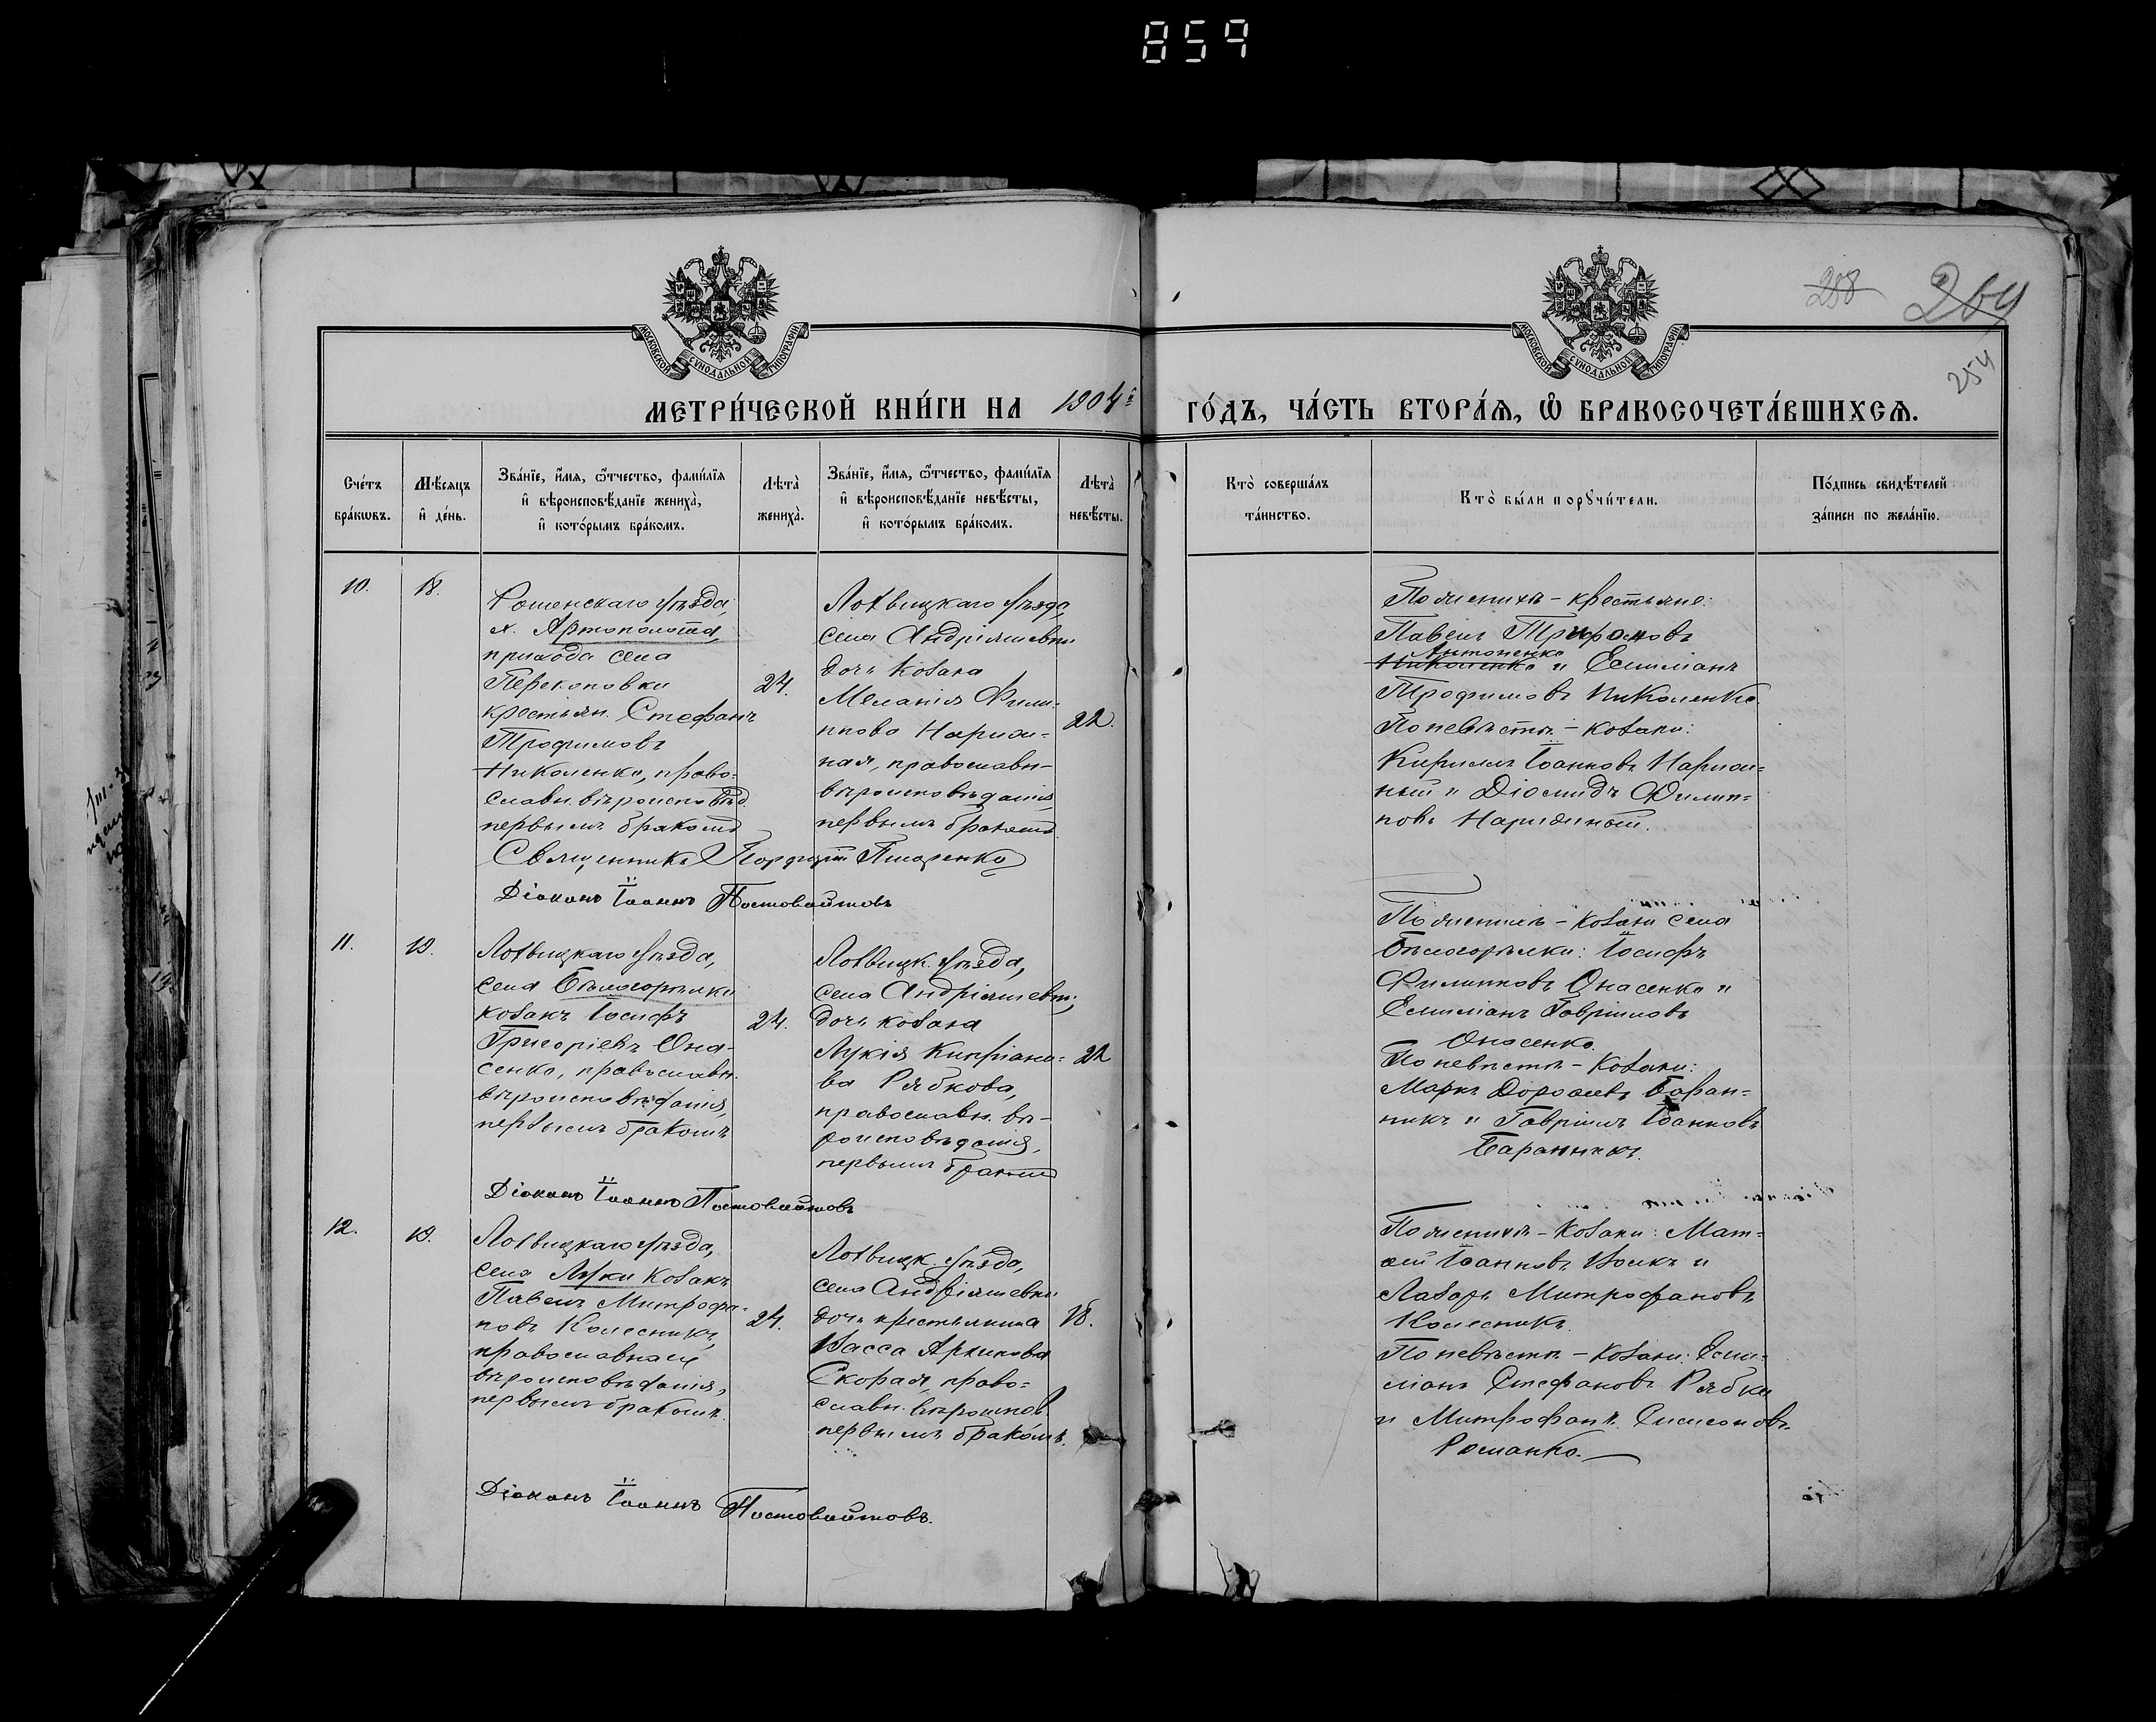 859
МОСКОВСКОЙ СУНОДАЛЬНОЙ ТИПОГРАФІИ
МОСКОВСКОЙ СУНОДАЛЬНОЙ ТИПОГРАФІИ
258
264
254
МЕТРИ́ЧЕСКОЙ КНИ́ГИ НА 1904й ГО́ДЪ, ЧА́СТЬ ВТОРА́Ѧ, Ѡ҆ БРАКОСОЧЕТА́ВШИХСѦ.
Сче́тъ бра́кωвъ.
Мѣ́сяцъ и҆ де́нь.
Зва́нїе, и҆́мя, ѻ҆́тчество, фами́лїя
и҆ вѣроисповѣ́данїе жениха̀,
и҆ кото́рымъ бра́комъ.
Лѣта̀ жениха̀.
Зва́нїе, и҆́мя, ѻ҆́тчество, фами́лїя
и҆ вѣроисповѣ́данїе невѣ́сты,
и҆ кото́рымъ бра́комъ.
Лѣта̀ невѣ́сты.
Кто̀ соверша́лъ
та́инство.
Кто̀ бы́ли порꙋчи́тели.
По́дпись свидѣ́телей
за́писи по жела́нїю.
10.
18.
Роменскаго уѣзда,
х. Артополота,
прихода села
Перекоповки
крестьян. Стефанъ
Трофимовъ
Николенко, право-
славн. вѣроисповѣд.
первымъ бракомъ
24.
Лохвицкаго уѣзда,
села Андріяшевки
дочь козака
Меланія Филип-
пова Нариж-
ная, православн-
вѣроисповѣданія,
первымъ бракомъ
22.
Священникъ Порфирій Писаренко
Діаконъ Іоаннъ Постовойтовъ
По женихѣ - крестьяне:
Павелъ Трифоновъ
Антоненко
Николенко и Емиліанъ
Трофимовъ Николенко
По невѣстѣ - козаки:
Кириллъ Іоанновъ Нариж-
ный и Діомидъ Филип-
повъ Нарижный.
11.
19.
Лохвицкаго уѣзда,
села Бѣлогорѣлки
козакъ Іосифъ
Григоріевъ Она-
сенко, православн.
вѣроисповѣданія,
первымъ бракомъ
24.
Лохвицк. уѣзда,
села Андріяшевки,
дочь козака
Лукія Кипріано-
ва Рябкова,
православн. вѣ-
роисповѣданія,
первымъ бракомъ
22
Діаконъ Іоаннъ Постовойтовъ
По женихѣ - козаки села
Бѣлогорѣлки: Іосифъ
Филипповъ Онасенко и
Емиліанъ Гавріиловъ
Онасенко.
По невѣстѣ - козаки:
Маркъ Дороѳеевъ Баран-
никъ и Гавріилъ Іоанновъ
Баранникъ.
12.
19.
Лохвицкаго уѣзда,
села Луки козакъ
Павелъ Митрофа-
новъ Колесникъ,
православнаго
вѣроисповѣданія,
первымъ бракомъ.
24.
Лохвицк. уѣзда,
села Андріяшевки
дочь крестьянина
Васса Архипова
Скорая, право-
славн. вѣроиспов.
первымъ бракомъ.
18.
Діаконъ Іоаннъ Постовойтовъ.
По женихѣ - козаки: Мат-
ѳей Іоанновъ Вовкъ и
Лазарь Митрофановъ
Колесникъ.
По невѣстѣ - козаки: Еми-
ліанъ Стефановъ Рябко
и Митрофанъ Симеоновъ
Романко.